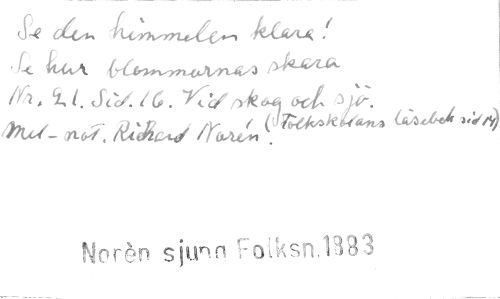 Se den himmelen klara!
Se hur blommornas skara
Nr. 21. Sid. 16. Vid skog och sjö.
Mel-not. Richard Norén. (Folkskolans läsebok sid 14)
Norèn sjung Folksn. 1883